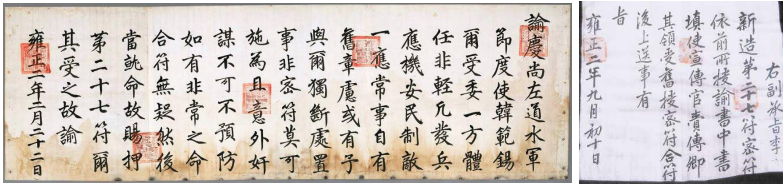 諭慶尚左道水軍
節度使韓範錫
爾受委一方體
任非輕凡發兵
應機安民制敵
一應常事自有
舊章慮或有予
與爾獨斷處置
事非密符莫可
施爲且意外奸
謀不可不預防
如有非常之命
合符無疑然後
當就命故賜押
第二十七符爾
其受之故諭
雍正二年二月二十二日
右副承旨李
新造第二十七符密符
依前所授諭書中書
填使宣傳官賫傳卿
其領受舊授密符合符
後上送事有
旨
雍正二年九月初十日